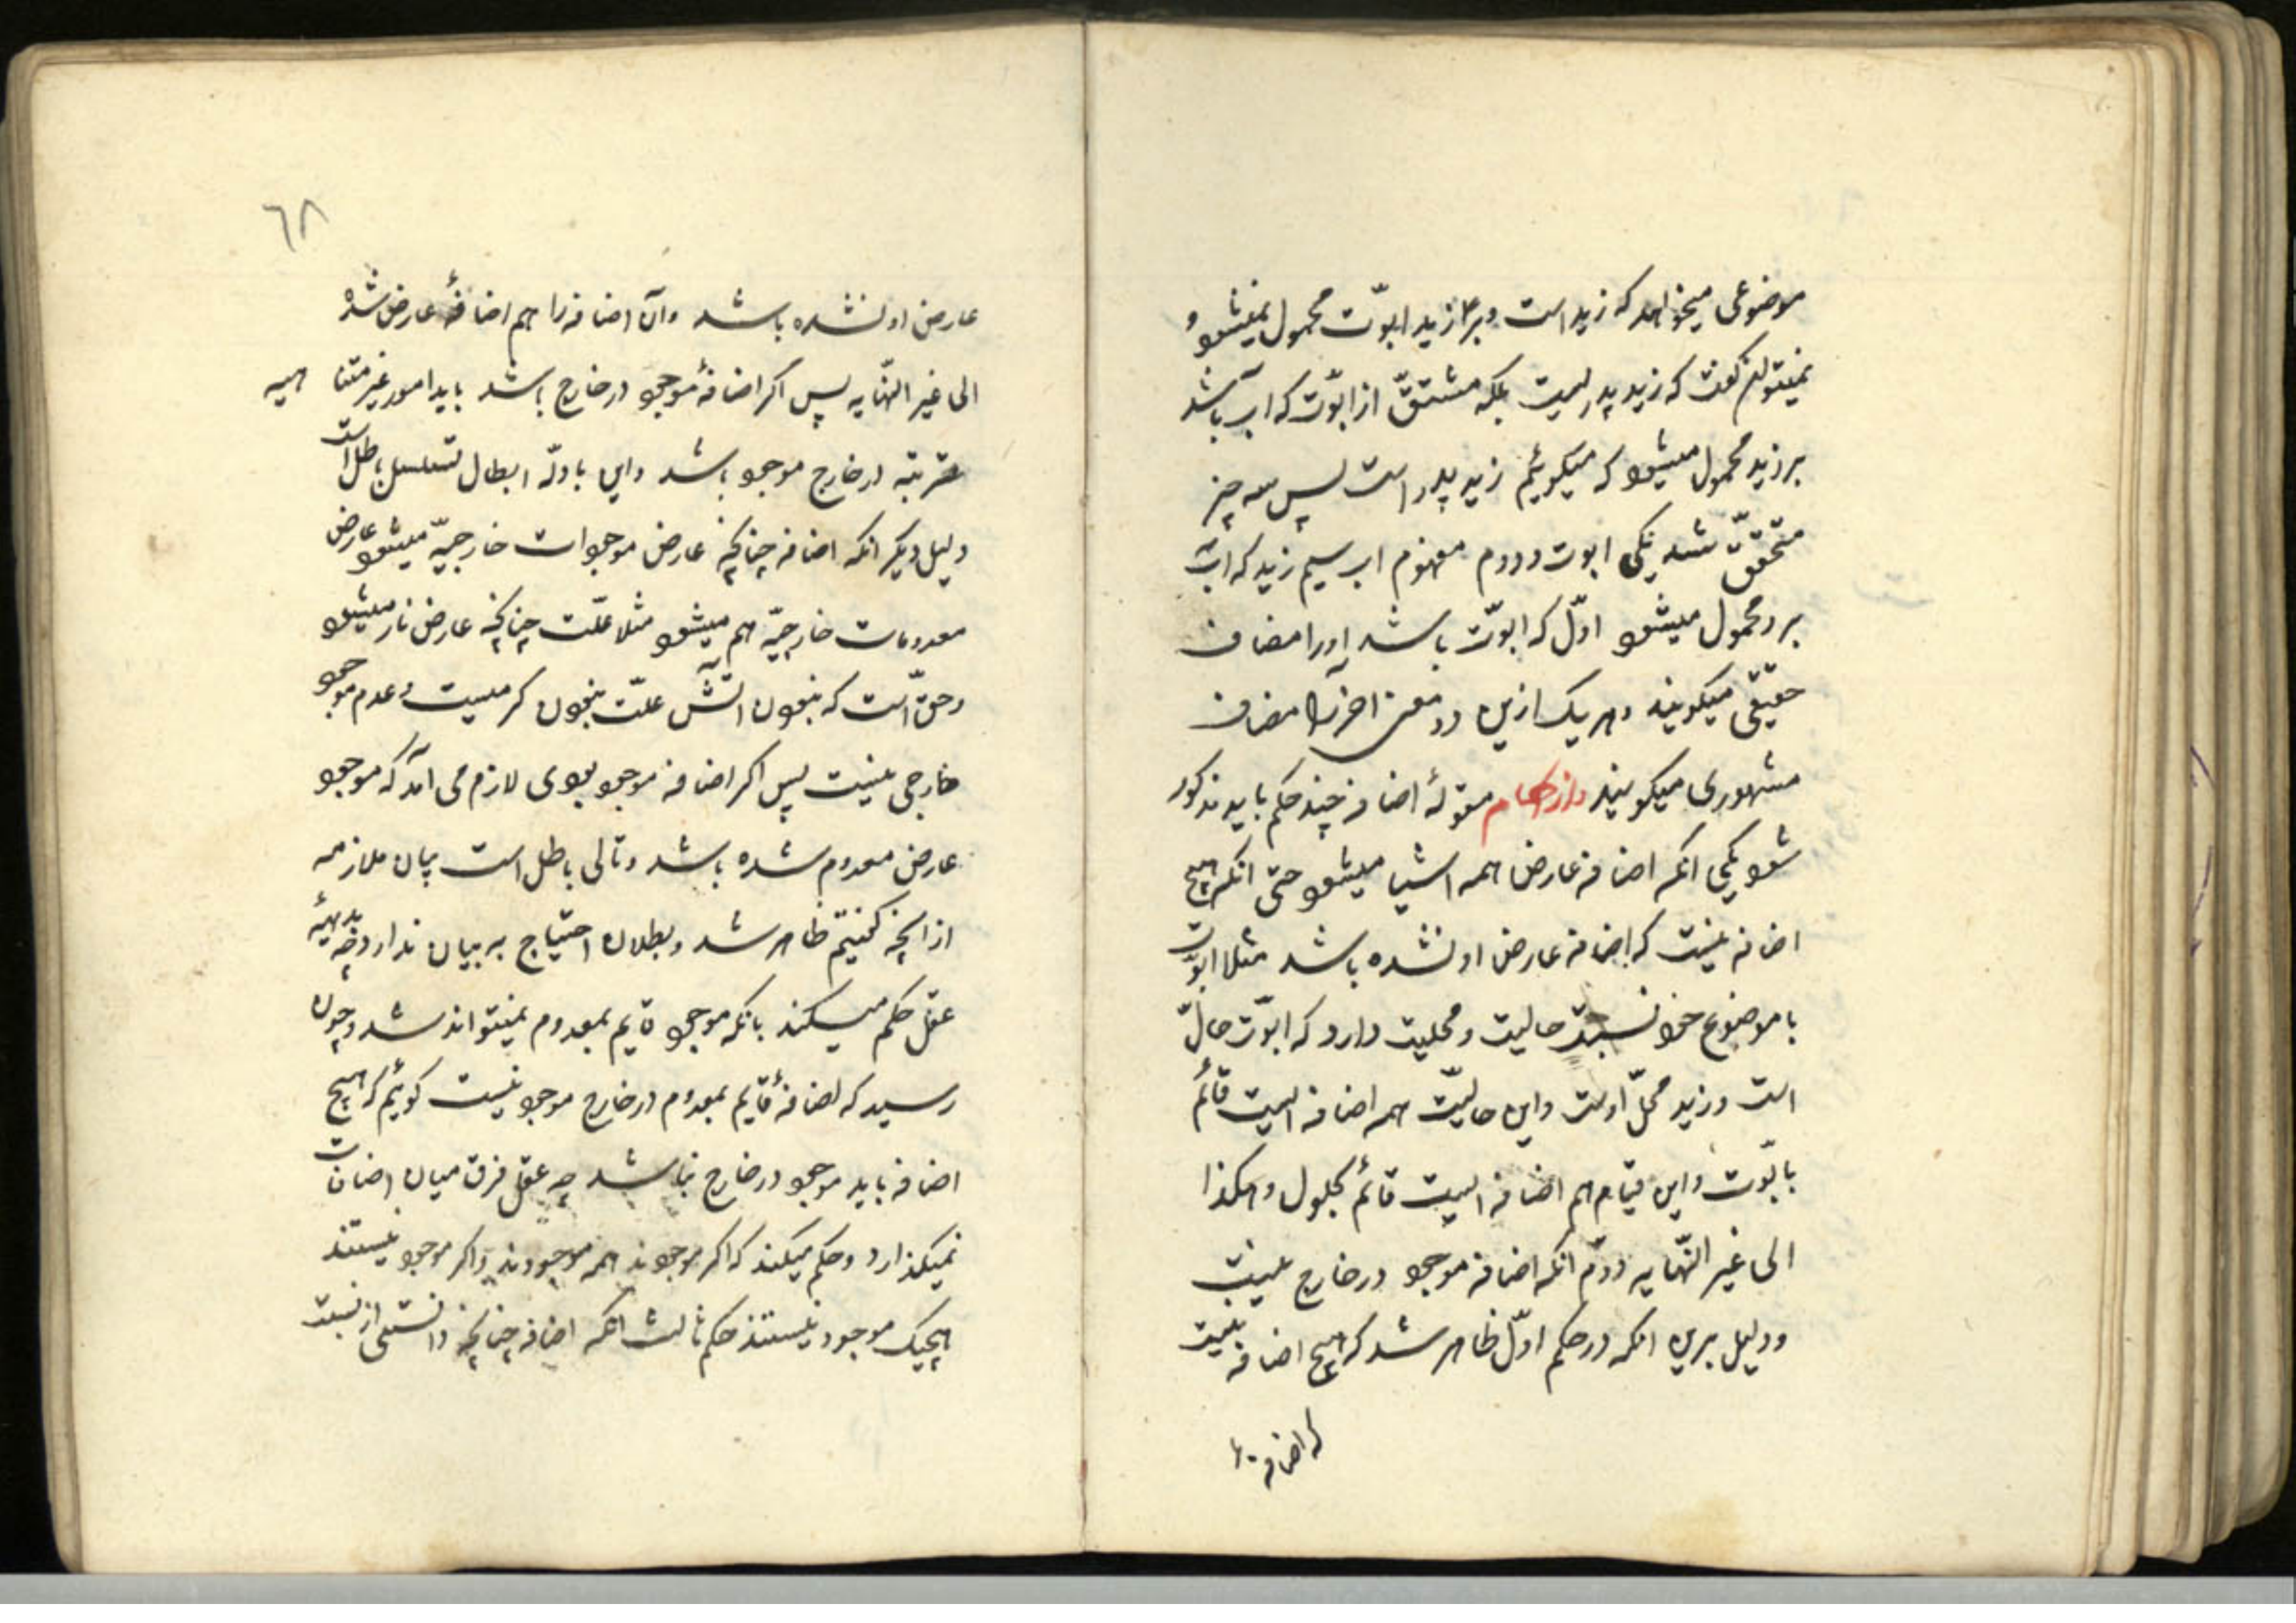 موضوعی میخواهد که زید است و بر زید ابوّت محمول نمیشود و
نمیتوانم گفت که زید پدریست بلکه مشتقّ از ابوّت که اب باشد
بر زید محمول میشود که میگوئیم زید پدر است پس سه چیز
متحقّق شد یکی ابوت و دوم مفهوم اب سیم زید که اب
برو محمول میشود اوّل که ابوّت باشد اورا مضاف
حقیقی میگویند و هر یک ازین دو معنی اخر را مضاف
مشهوری میگویند و از احکام مقولهٔ اضافه چند حکم باید مذکور
شود یکی انکه اضافه عارض همه اشیا میشود حتی انکه هیچ
اضافه نیست که اضافه عارض او نشده باشد مثلا ابوّت
با موضوع خود نسبت حالیت و محلیت دارد که ابوّت حالّ
است و زید محلّ اوست و این حالیّت هم اضافه ایست قائم
بابوّت و این قیام هم اضافه ایست قائم بحلول و هکذا
الی غیر النّهایه دوّم انکه اضافه موجود در خارج نیست
و دلیل برین انکه در حکم اوّل ظاهر شد که هیچ اضافه نیست
که اضافهٔ
٦٨
عارض او نشده باشد و آن اضافه را هم اضافهٔ عارض شده
الی غیر النّهایه پس اکر اضافهٔ موجود در خارج باشد باید امور غیر متناهیه
مترتبه در خارج موجود باشد و این بادلّه ابطال تسلسل باطل است
دلیل دیکر انکه اضافه چنانچه عارض موجودات خارجیّه میشود عارض
معدومات خارجیّه هم میشود مثلا علّت چنانچه عارض نار میشود
و حقّ است که نبودن اتش علّت نبودن کرمیست و عدم موجود
خارجی نیست پس اکر اضافه موجود بودی لازم می آمد که موجود
عارض معدوم شده باشد و تالی باطل است بیان ملازمه
از انچه کفتیم ظاهر شد و بطلان احتیاج به بیان ندارد چه بدیههٔ
عقل حکم میکند بانکه موجود قایم بمعدوم نمیتواند شد و چون
رسید که اضافهٔ قایم بمعدوم در خارج موجود نیست کوئیم که هیچ
اضافه باید موجود در خارج نباشد چه عقل فرق میان اضافات
نمیکذارد و حکم میکند که اکر موجودند همه موجودند و اکر موجود نیستند
هیچیک موجود نیستند حکم ثالث انکه اضافه چنانچه دانستی از نسبت